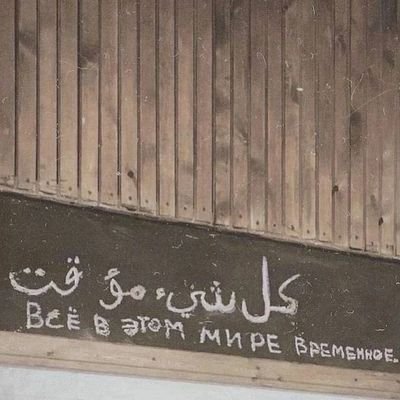 كل شيء مؤقت
Всё в этом мире временное.